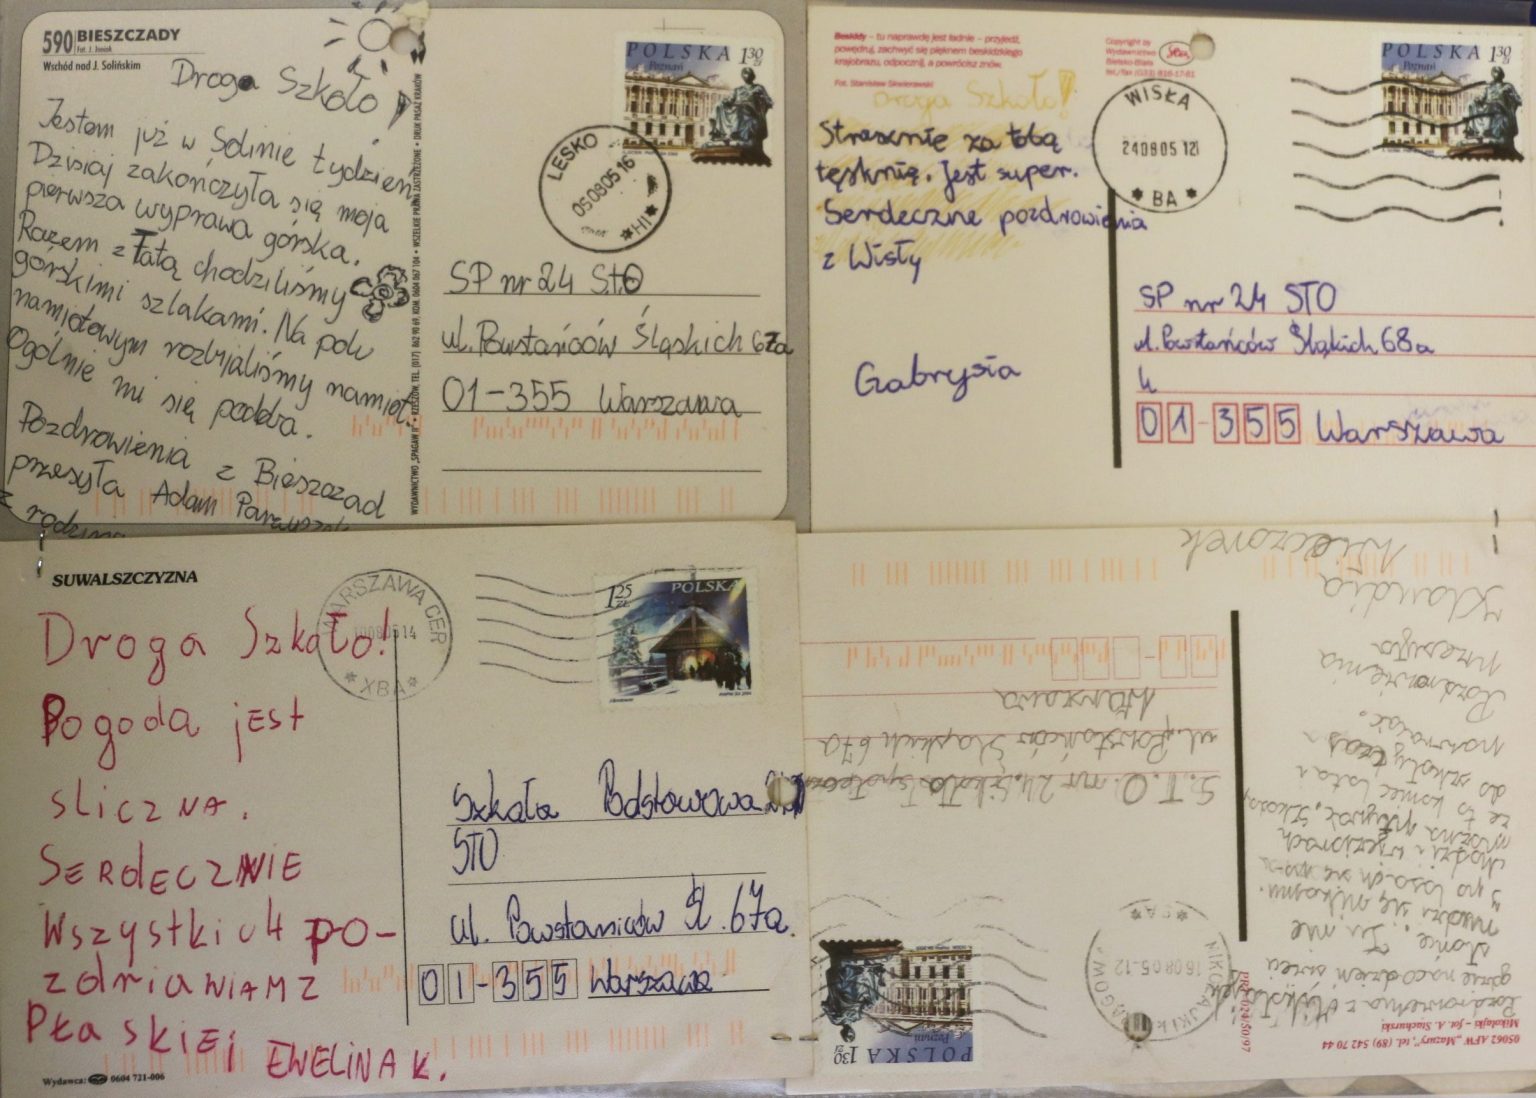 590 BIESZCZADY
Fot. J. Joniak
Wschód nad J. Solińskim
Droga Szkoło!
Jestem już w Solinie tydzień
Dzisiaj zakończyła się moja
pierwsza wyprawa górska.
Razem z Tatą chodziliśmy
górskimi szlakami. Na polu
namiotowym rozbijaliśmy namiot.
Ogólnie mi się podoba.
Pozdrowienia z Bieszczad
przesyła Adam
z rodziną
WYDAWNICTWO „SPAGAW II" • RZESZÓW, TEL. (017) 862 90 69, KOM. 0604 067 104 • WSZELKIE PRAWA ZASTRZEŻONE • DRUK PASAŻ KRAKÓW
POLSKA 130 zł
Poznań
LESKO
050805 16
*HI*
SP nr 24 STO
ul. Powstańców Śląskich 67a
01-355 Warszawa
Beskidy – tu naprawdę jest ładnie – przyjedź,
powędruj, zachwyć się pięknem beskidzkiego
krajobrazu, odpocznij, a powrócisz znów.
Fot. Stanisław
Copyright by
Wydawnictwo
Bielsko-Biała
tel./fax (033) 816-17-81
Droga Szkoło!
Strasznie za tobą
tęsknię. Jest super.
Serdeczne pozdrowienia
z Wisły
Gabrysia
WISŁA
240805 12
* BA *
POLSKA 130 zł
Poznań
SP nr 24 STO
ul. Powstańców Śląkich 68a
4
01-355 Warszawa
SUWALSZCZYZNA
Droga Szkoło!
Pogoda jest
śliczNA.
SERdECZNIE
WSzyStkich po-
zdriawiAM Z
PłaSkiEj EWELINA K.
Wydawca: 0604 721-006
WARSZAWA CER
080514
* XBA *
1 25 ZŁ POLSKA
Szkała Podstawowa
STO
ul. Powstaniców Śl. 67a.
01-355 Warszawa
05062 AFW „Mazury", tel. (89) 542 70 44
Mikołajki – fot. A. Stachurski
Pozdrowienia z Mikołajek
gdzie na co dzień świeci
słońce. Tu nie
nudzi się nikomu.
ze to koniec lata i
do szkoły czas
powracać.
Pozdrowienia
przesyła
Klaudia
Wieczorek
PRP-024/50/97
MIKOŁAJKI k. MRĄGOWA
160805-12
POLSKA 130 zł
Poznań
S.T.O. nr 24. Szkoła Społeczna
ul. Powstańców Śląskich 67a
Warszawa